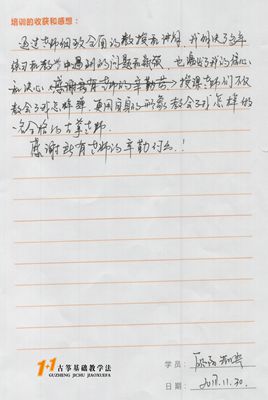 培训的收获和感想:
通过老师细致全面的教授和讲解,我解决了多年
练习和教学中遇到的问题和
和决心。感谢所有老师的辛勤劳 授课老师们不仅
教会了我怎样弹,更用自身的形象教会了我怎样做
一名合格的古筝老师。
感谢所有老师的辛勤付出!
1+1 古筝基础教学法
GUZHENG JICHU JIAOXUEFA
学员:
日期: 2018.11.30.